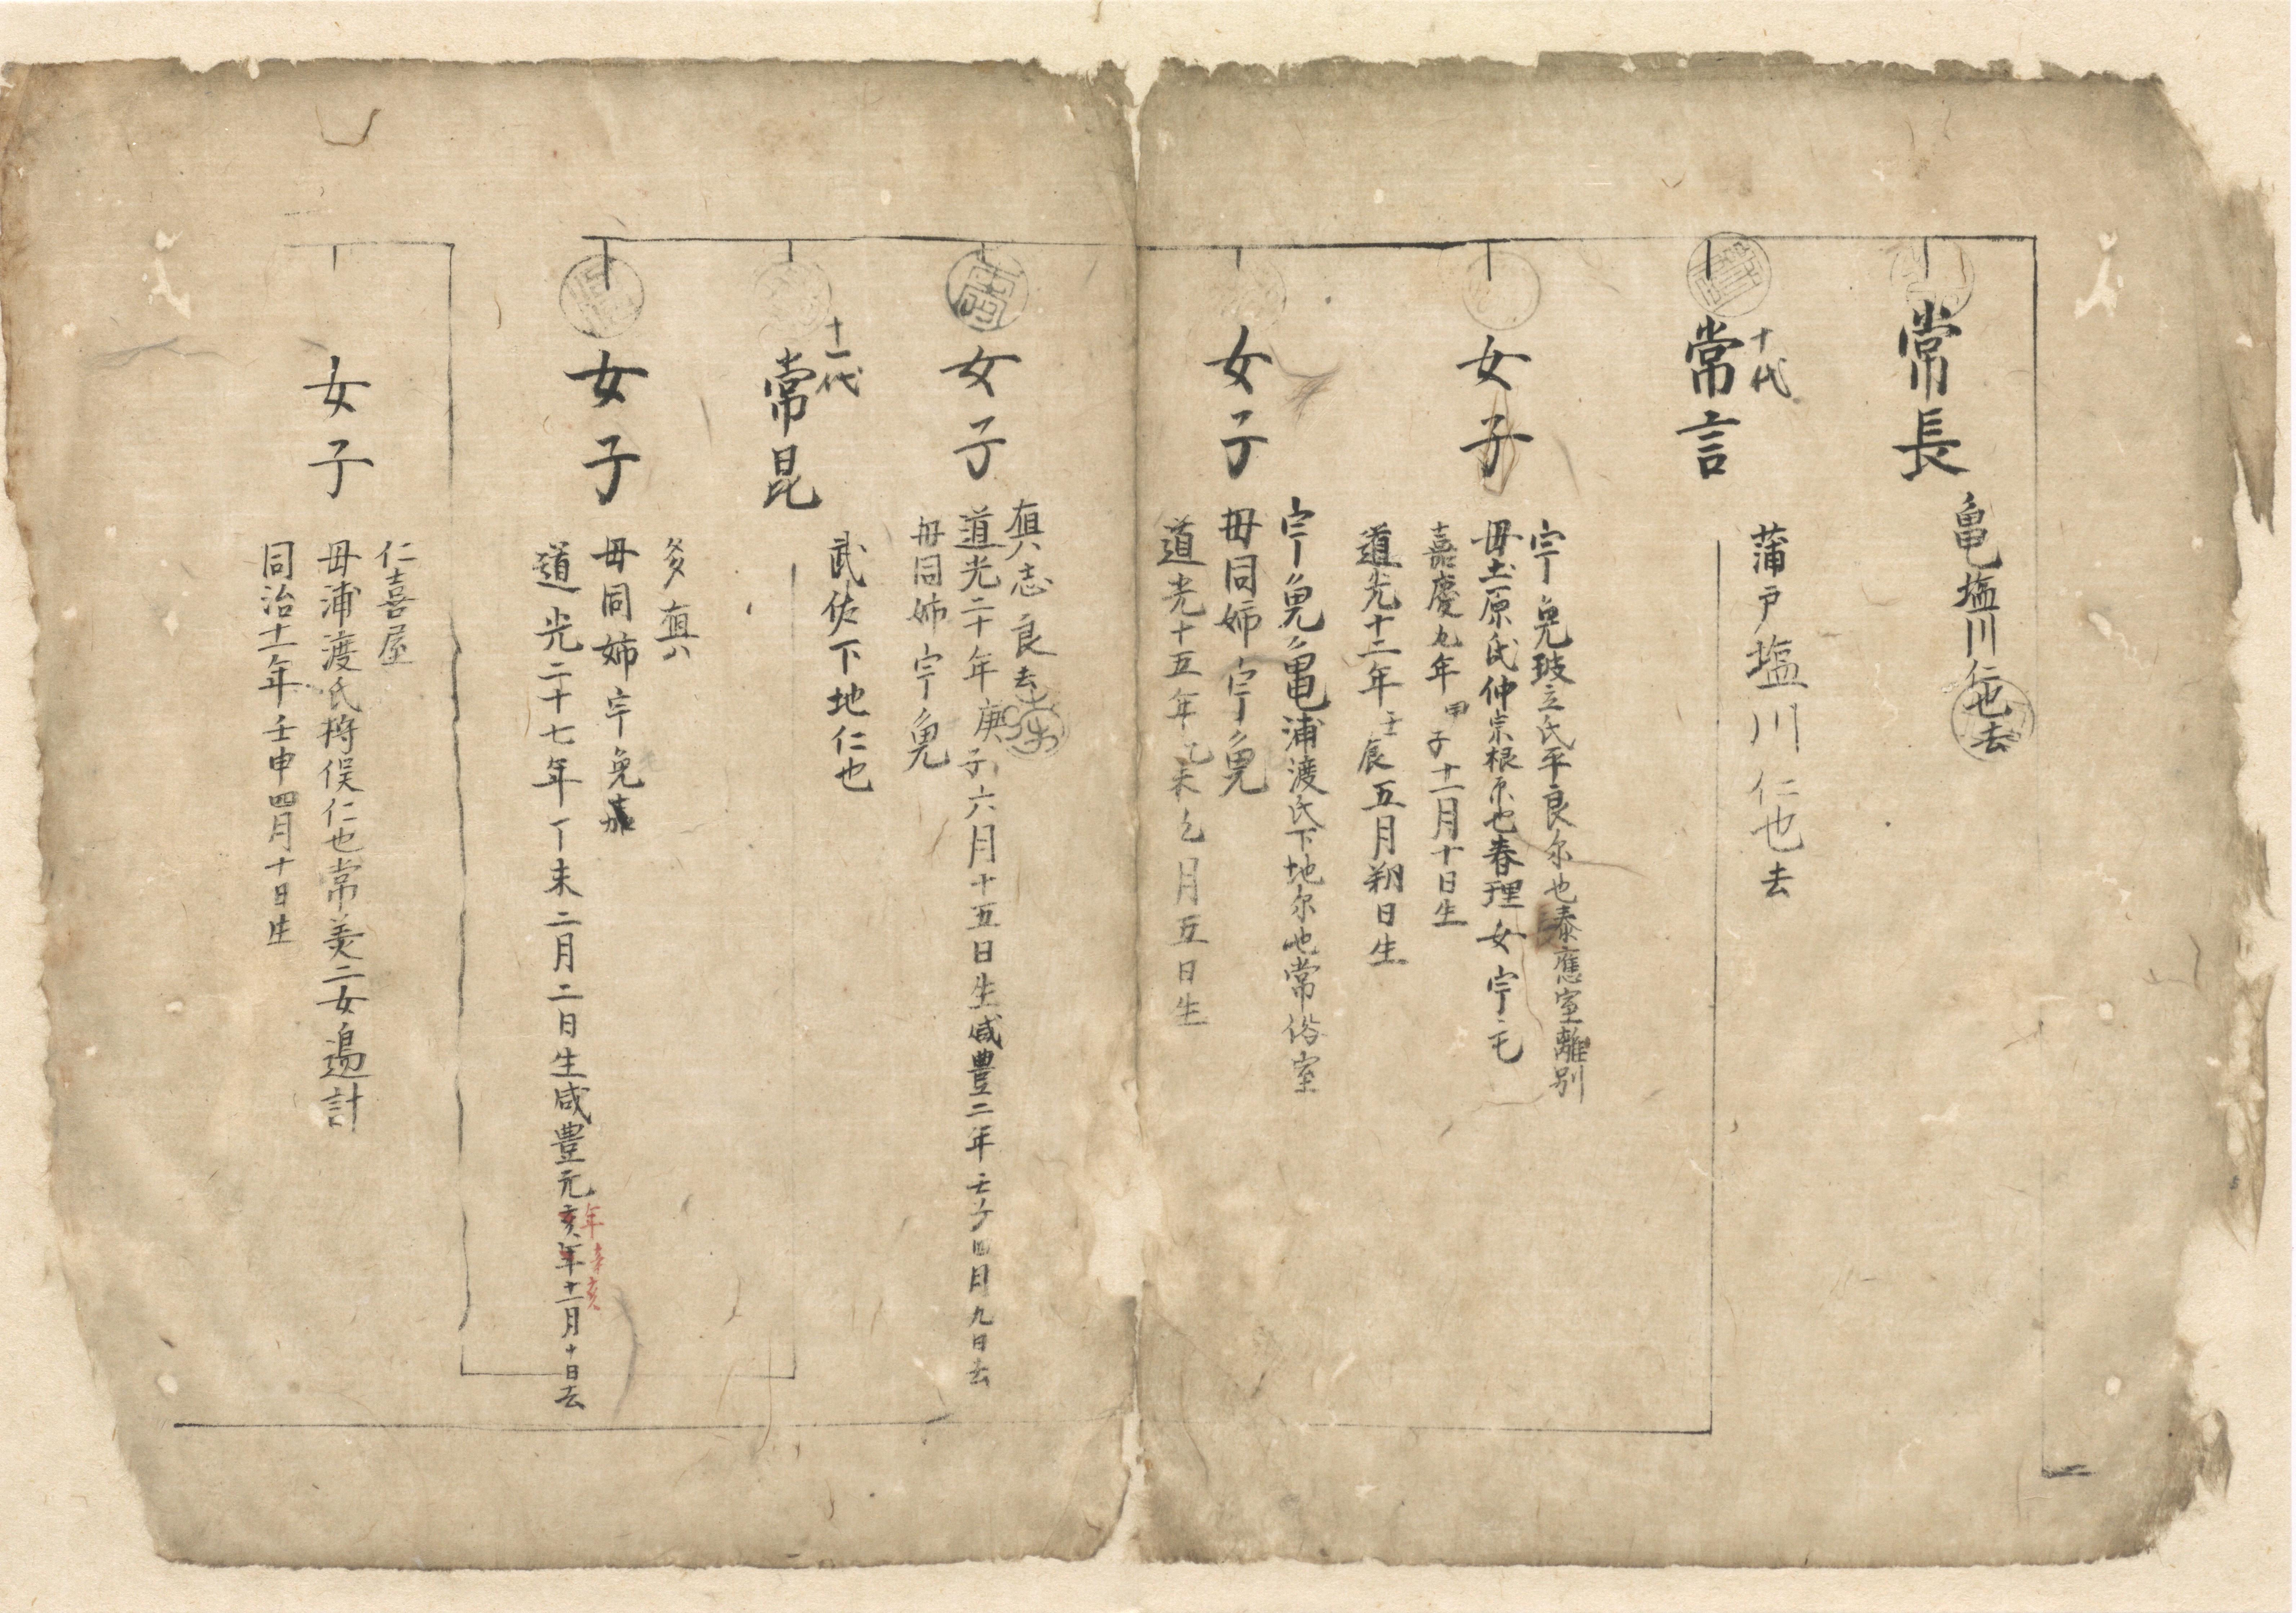 常長
亀塩川仁也去
十代
常言
蒲戸塩川仁也去
女子
宇免玻立氏平良尓也泰應室離別
毋土原氏仲宗根尓也春理女宇モ
嘉慶九年甲子十一月十日生
道光十二年壬辰五月朔日生
女子
宇免亀浦渡氏下地尓也常俗室
毋同姉宇免
道光十五年乙未七月五日生
女子
真志良去
道光二十年庚子六月十五日生咸豊二年壬子四月九日去
毋同姉宇免
十一代
常昆
武佐下地仁也
女子
多真
毋同姉宇免嘉
道光二十七年丁未二月二日生咸豊元亥年十一月十日去
年辛亥
女子
仁喜屋
毋浦渡氏將俣仁也常美二女過計
同治十一年壬申四月十日生